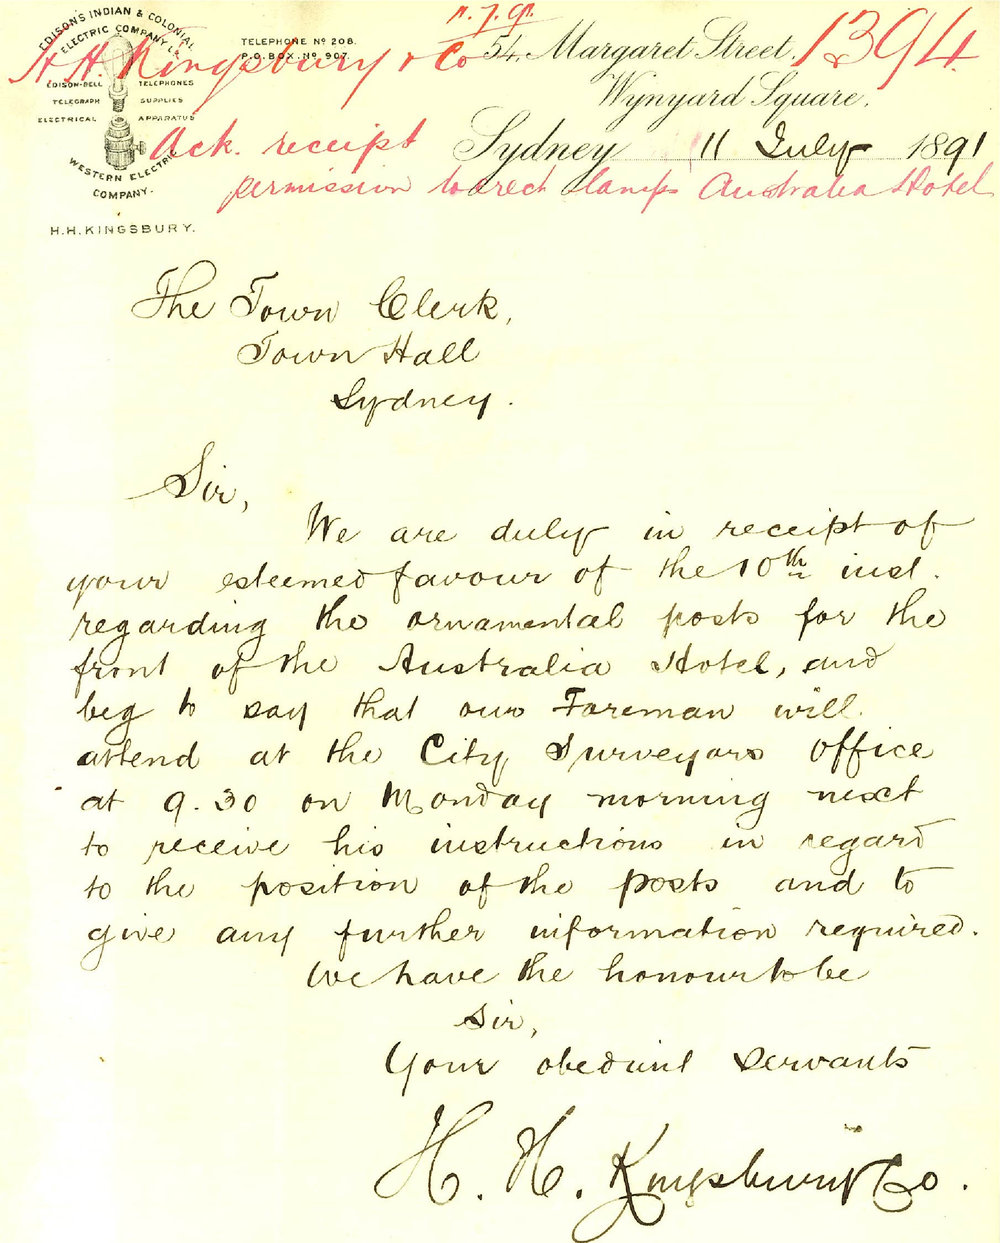 EDISON'S INDIAN & COLONIAL
ELECTRIC COMPANY Ld
EDISON-BELL TELEPHONES
TELEGRAPH SUPPLIES
ELECTRICAL APPARATUS
WESTERN ELECTRIC
COMPANY.
H.H. KINGSBURY.
TELEPHONE No 208.
P.O. BOX. No 907.
54, Margaret Street,
Wynyard Square,
Sydney 11 July 1891
1394
H H Kingsbury & Co
Ack. receipt
permission to erect lamps Australia Hotel
The Town Clerk,
Town Hall
Sydney.
Sir,
We are duly in receipt of
your esteemed favour of the 10th inst.
regarding the ornamental posts for the
front of the Australia Hotel, and
beg to say that our Foreman will
attend at the City Surveyors office
at 9.30 on Monday morning next
to receive his instructions in regard
to the position of the posts and to
give any further information required.
We have the honour to be
Sir,
Your obedient servants
H. H. Kingsbury & Co.